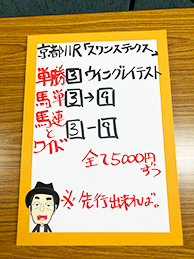 京都11R「スワンステークス」
単勝 3 ウイングレイテスト
馬単 3→9
馬連とワイド 3-9
全て5000円ずつ
※先行出来れば。